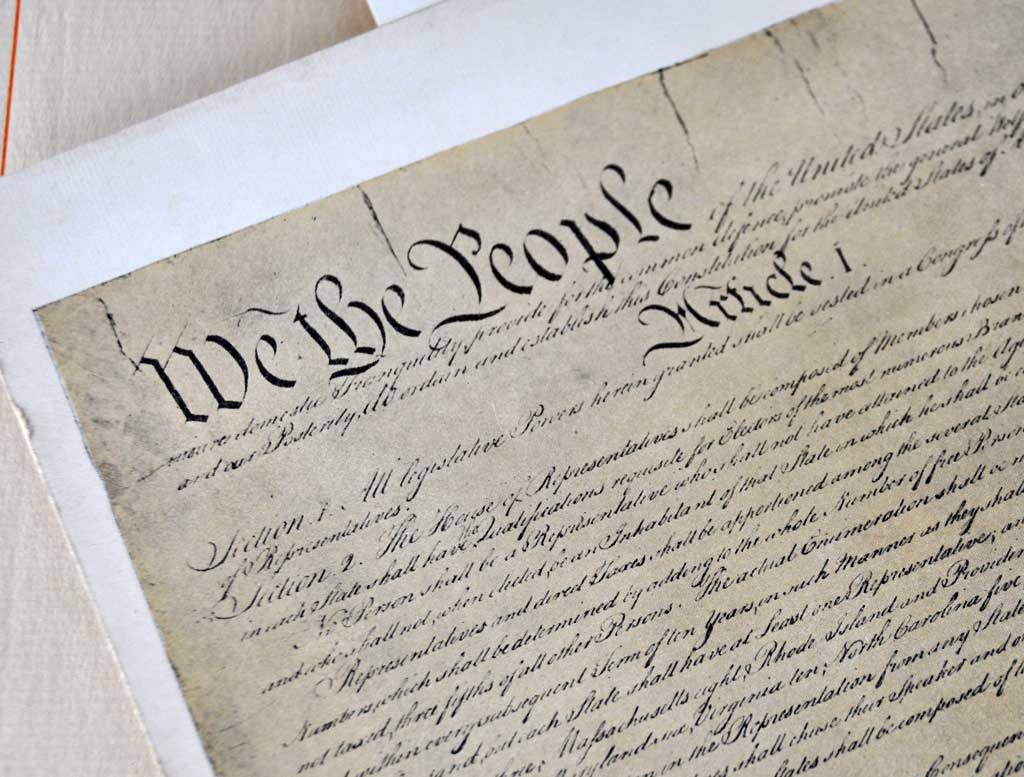 We the People of the United States, in
insure domestic Tranquility, provide for the common defence, promote the general
and our Posterity, do ordain and establish this Constitution for the United States of
Article. I.
Section. 1. All legislative Powers herein granted shall be vested in a Congress of
of Representatives.
Section. 2. The House of Representatives shall be composed of Members chosen
in each State shall have the Qualifications requisite for Electors of the most numerous Bran
No Person shall be a Representative who shall not have attained to the Age
and who shall not, when elected, be an Inhabitant of that State in which he shall be
Representatives and direct Taxes shall be apportioned among the several Sta
Numbers, which shall be determined by adding to the whole Number of free Person
not taxed, three fifths of all other Persons. The actual Enumeration shall be
and within every subsequent Term of ten Years, in such Manner as they shall
but each State shall have at Least one Representative; an
three, Massachusetts eight, Rhode Island and Providen
Maryland six, Virginia ten, North Carolina five
in the Representation from any State
shall chuse their Speaker and
States shall be composed of
Consequen